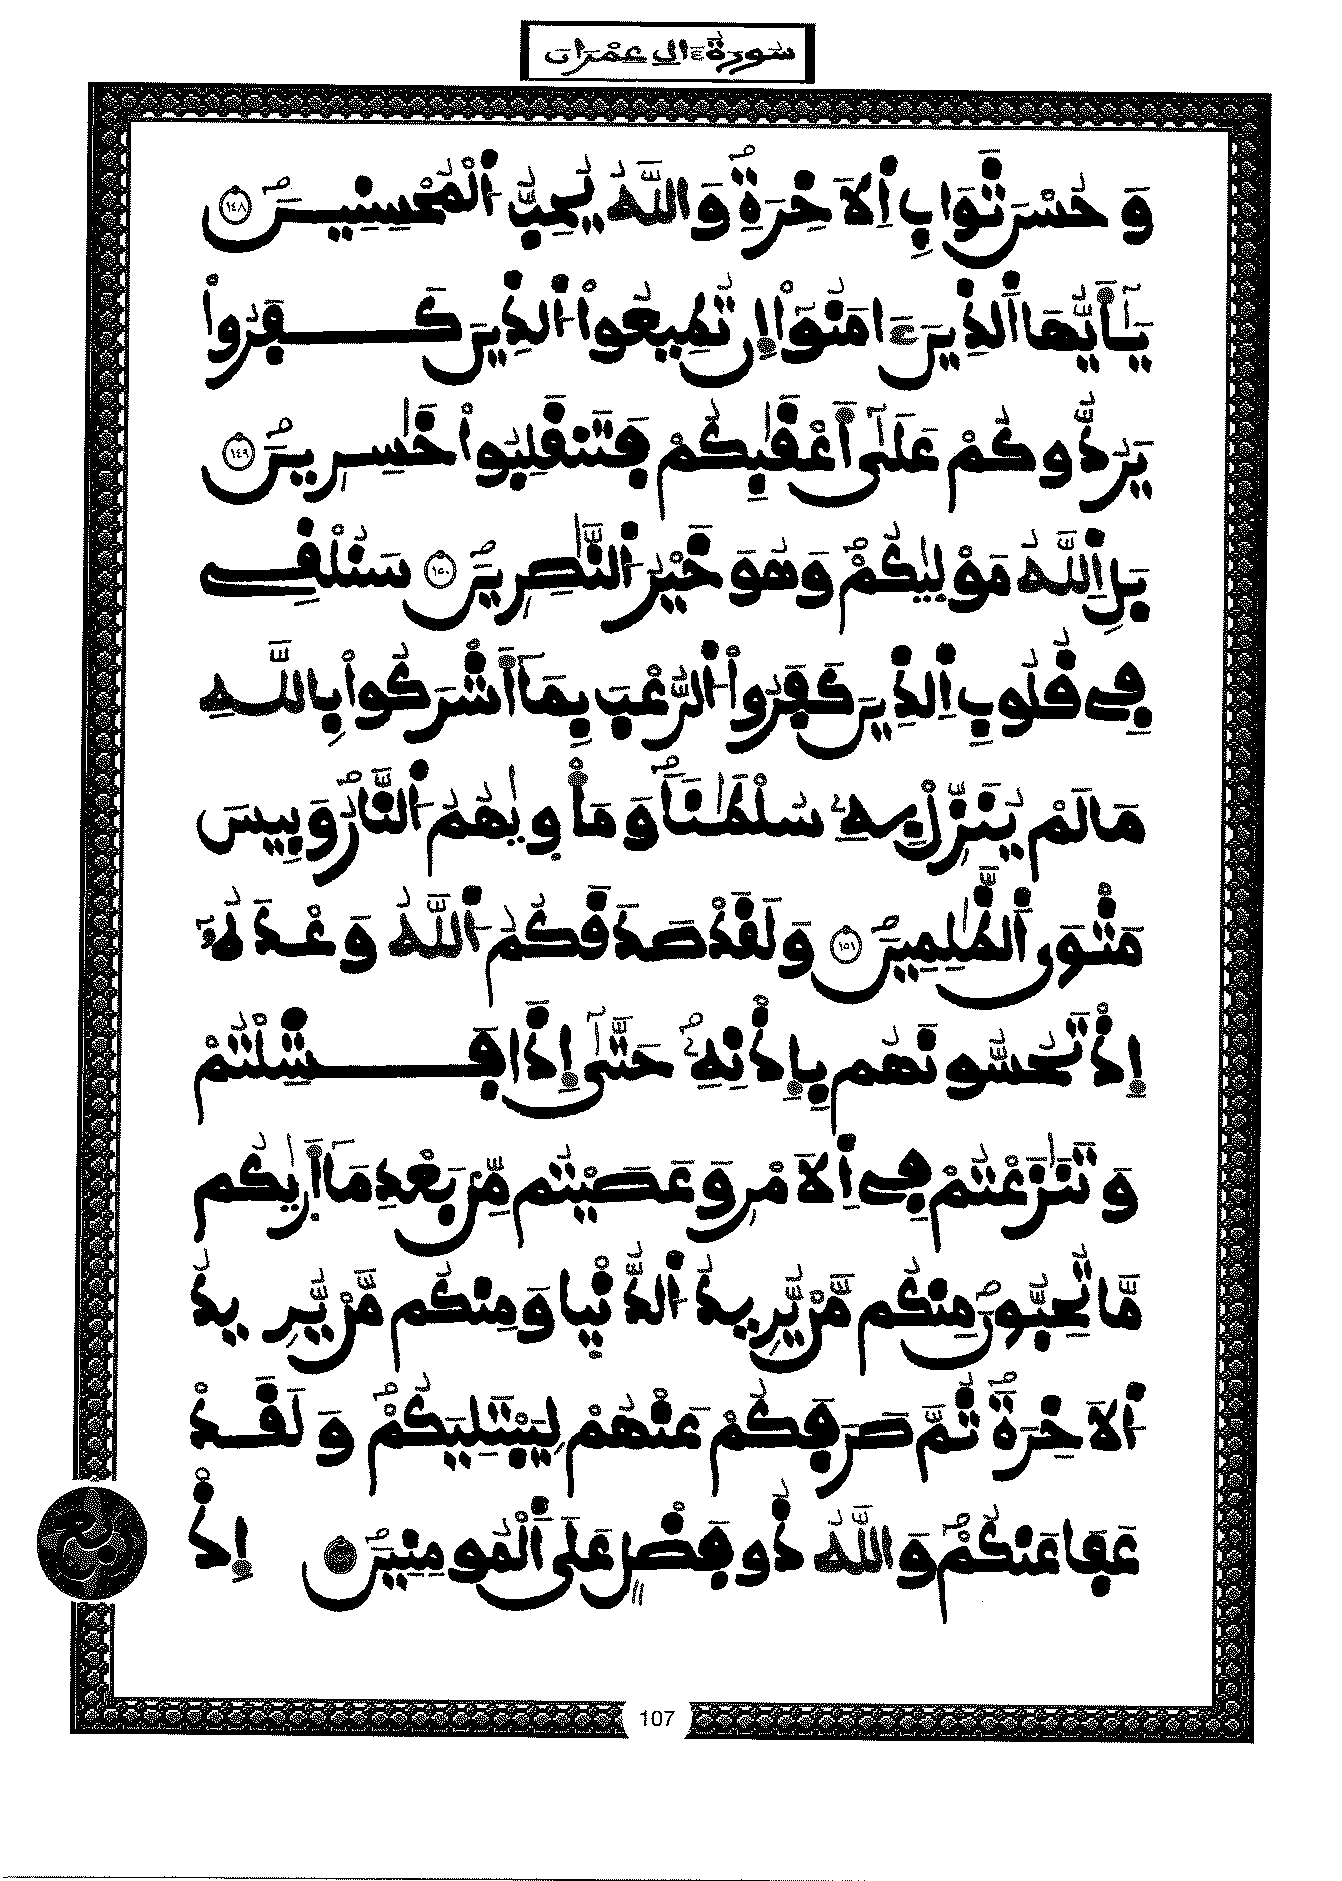 سُورَةُ ءَالِ عِمْرَانَ
وَحُسْنَ ثَوَابِ اِ۬لَاخِرَةِۖ وَاللَّهُ يُحِبُّ اُ۬لْمُحْسِنِينَۖ ١٤٨
يَٰٓأَيُّهَا اَ۬لذِينَ ءَامَنُوٓاْ إِن تُطِيعُواْ اُ۬لذِينَ كَفَرُواْ
يَرُدُّوكُمْ عَلَىٰٓ أَعْقَٰبِكُمْ فَتَنقَلِبُواْ خَٰسِرِينَۖ ١٤٩
بَلِ اِ۬للَّهُ مَوْلَيٰكُمْۖ وَهُوَ خَيْرُ اُ۬لنَّٰصِرِينَۖ ١٥٠ سَنُلْقِے
فِے قُلُوبِ اِ۬لذِينَ كَفَرُواْ اُ۬لرُّعْبَ بِمَآ أَشْرَكُواْ بِاللَّهِ
مَا لَمْ يُنَزِّلْ بِهِۦ سُلْطَٰناٗۖ وَمَأْوَيٰهُمُ اُ۬لنَّارُۖ وَبِيسَ
مَثْوَي اَ۬لظَّٰلِمِينَۖ ١٥١ وَلَقَدْ صَدَقَكُمُ اُ۬للَّهُ وَعْدَهُۥٓ
إِذْ تَحُسُّونَهُم بِإِذْنِهِۦۖ حَتَّىٰٓ إِذَا فَشِلْتُمْ
وَتَنَٰزَعْتُمْ فِے اِ۬لَامْرِ وَعَصَيْتُم مِّنۢ بَعْدِ مَآ أَر۪يٰكُم
مَّا تُحِبُّونَۖ مِنكُم مَّنْ يُّرِيدُ اُ۬لدُّنْي۪ا وَمِنكُم مَّنْ يُّرِيدُ
اُ۬لَاخِرَةَۖ ثُمَّ صَرَفَكُمْ عَنْهُمْ لِيَبْتَلِيَكُمْۖ وَلَقَدْ
عَفَا عَنكُمْۖ وَاللَّهُ ذُو فَضْلٍ عَلَي اَ۬لْمُومِنِينَۖ ١٥٢ إِذْ
107